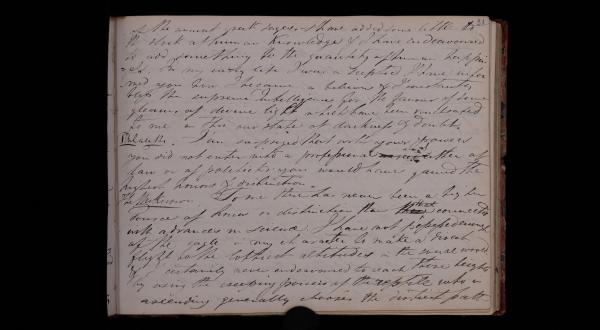 31
of the recent great sages I have added some little to
the stock of human knowledge & I have endeavoured
to add something to the quantity of human happi
=ness. In my early life I was a sceptic I have infor
med you how I became a believer & I constantly
bless the supreme intelligence for the favour of some
gleams of divine light which have been vouchsafed
to me in this our state of darkness & doubt.
Philalethes. I am surprized that with your powers
you did not enter into a professional either of
law or of politics you would have gained the
highest honours & distinction.
The Unknown. To me there has never been a higher
source of honor or distinction than that connected
with advances in science. I have not possessed enough
of the eagle in my character to make a direct
flight to the loftiest altitudes in the social world
& I certainly never endeavoured to reach those heights
by using the creeping powers of the reptile who in
ascending generally chooses the dirtiest path